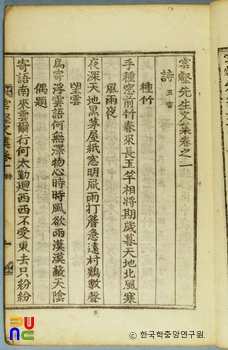 雲壑先生文集卷之一
詩 五言
種竹
手種窓前竹春來長玉竿相將期歲暮天地北風寒
風雨夜
夜深天地黑菉屋紙窓明風雨打簷急遠村鷄數聲
望雲
爲寄浮雲語何無漂物心時時風欲雨漠漠蔽天陰
偶題
寄語南來雲爾行何太勤廻西西不受東去只紛紛
雲壑文集卷一
한국학중앙연구원